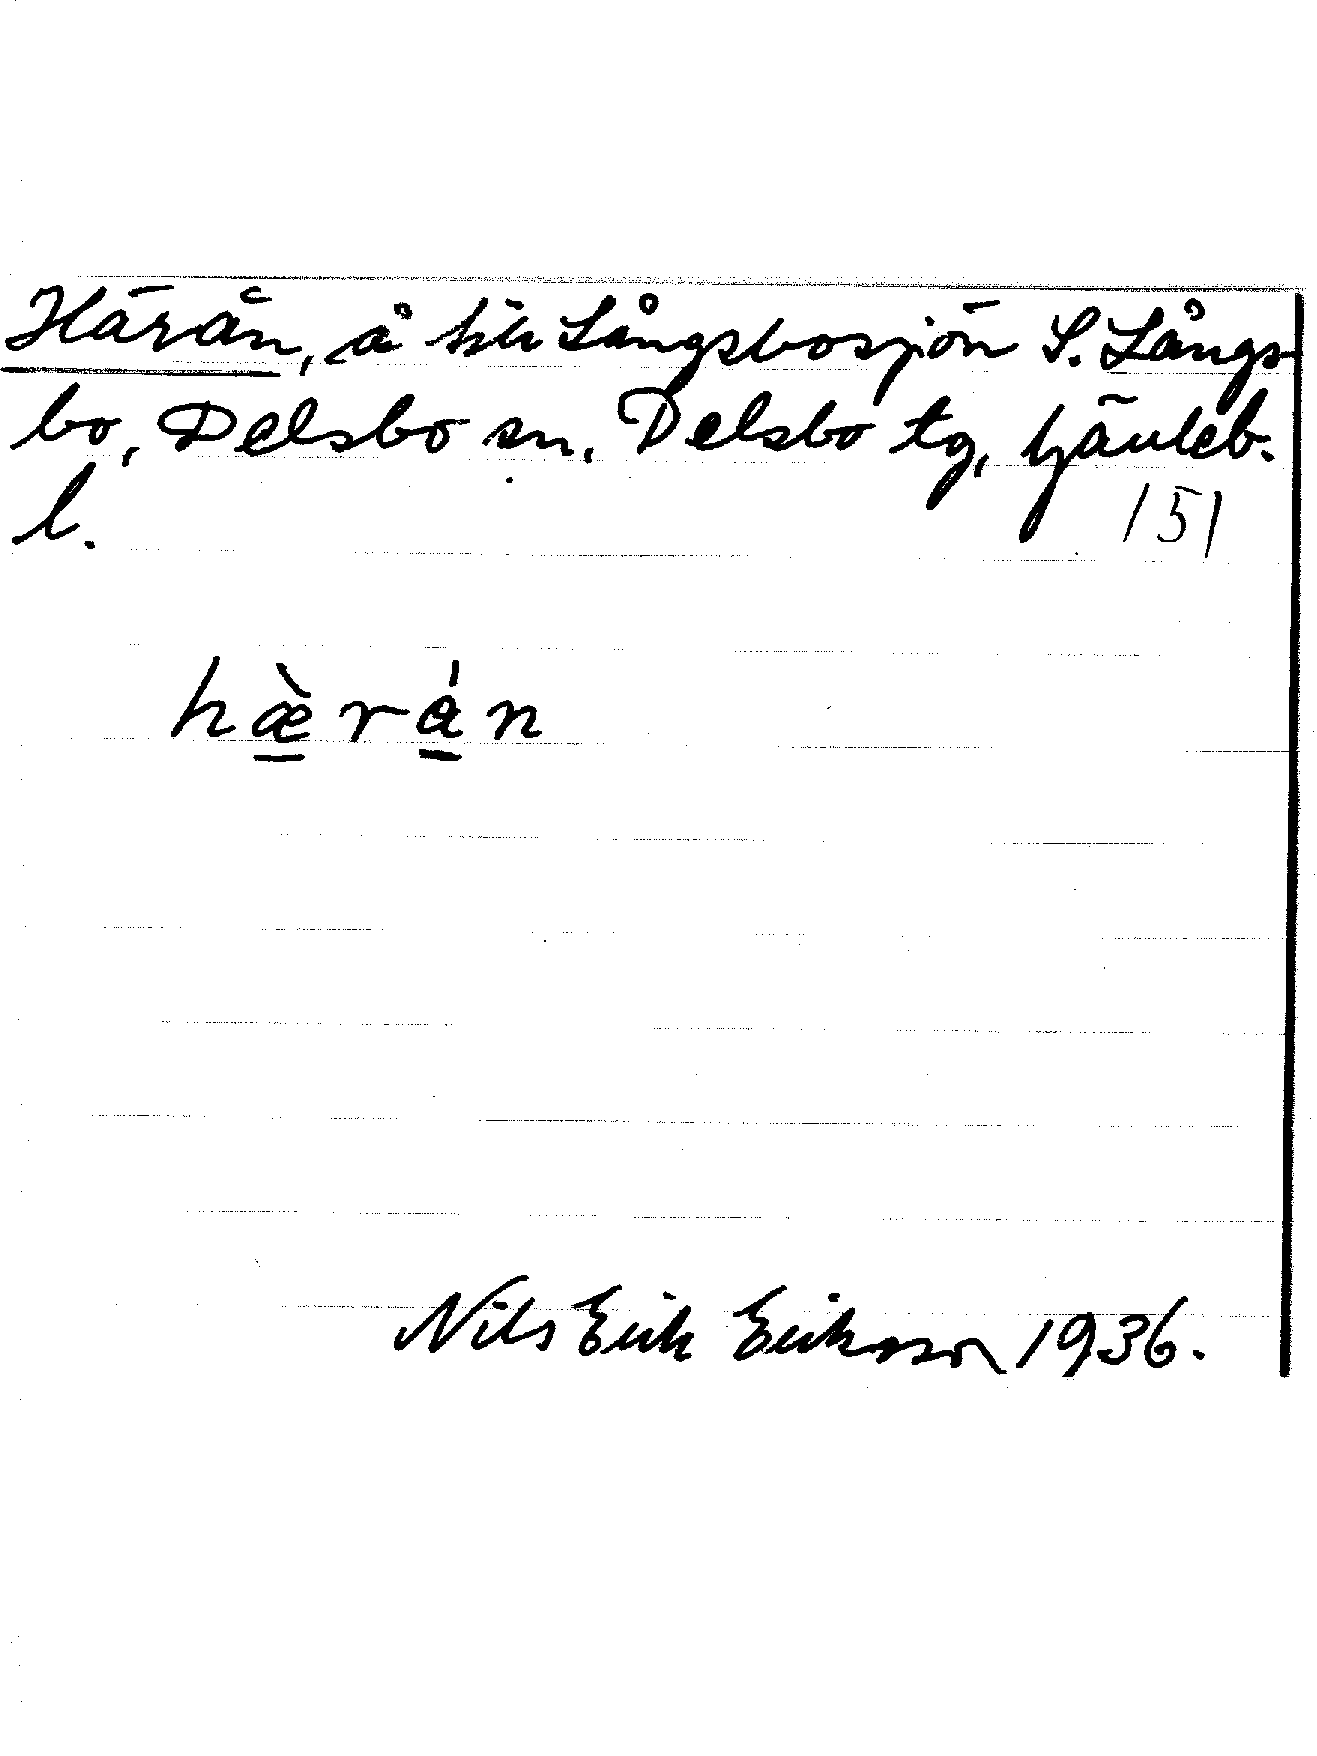 Härån, å till Långsbosjön S. Långs-
bo, Delsbo sn. Delsbo tg, Gävleb.
l.
151
hæ̱̀rá̱n
Nils Erik Eriksson 1936.